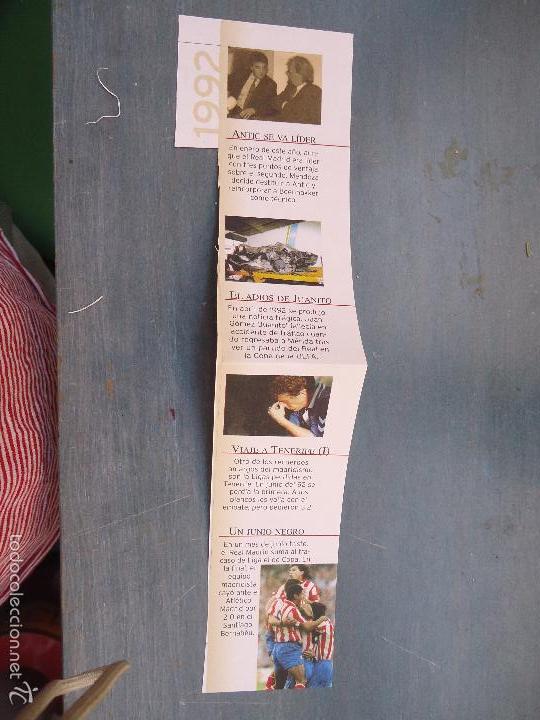 1992
ANTIC SE VA LÍDER
En enero de este año, aun-
que el Real Madrid era líder
con tres puntos de ventaja
sobre el segundo, Mendoza
decide destituir a Antic y
reincorporar a Beenhakker
como técnico.
EL ADIOS DE JUANITO
En abril de 1992 se produjo
una noticia trágica. Juan
Gómez 'Juanito' fallecía en
accidente de tráfico cuan-
do regresaba a Mérida tras
ver un partido del Real en
la Copa de la UEFA.
VIAJE A TENERIFE (I)
Otro de los recuerdos
amargos del madridismo
son la ligas perdidas en
Tenerife. En junio del 92 se
perdía la primera. A los
blancos les valía con el
empate, pero perdieron 3-2.
UN JUNIO NEGRO
En un mes de junio triste,
el Real Madrid suma al fra-
caso de Liga el de Copa. En
la final, el
equipo
madridista
cayó ante el
Atlético
Madrid por
2-0 en el
Santiago
Bernabéu.
todocoleccion.net